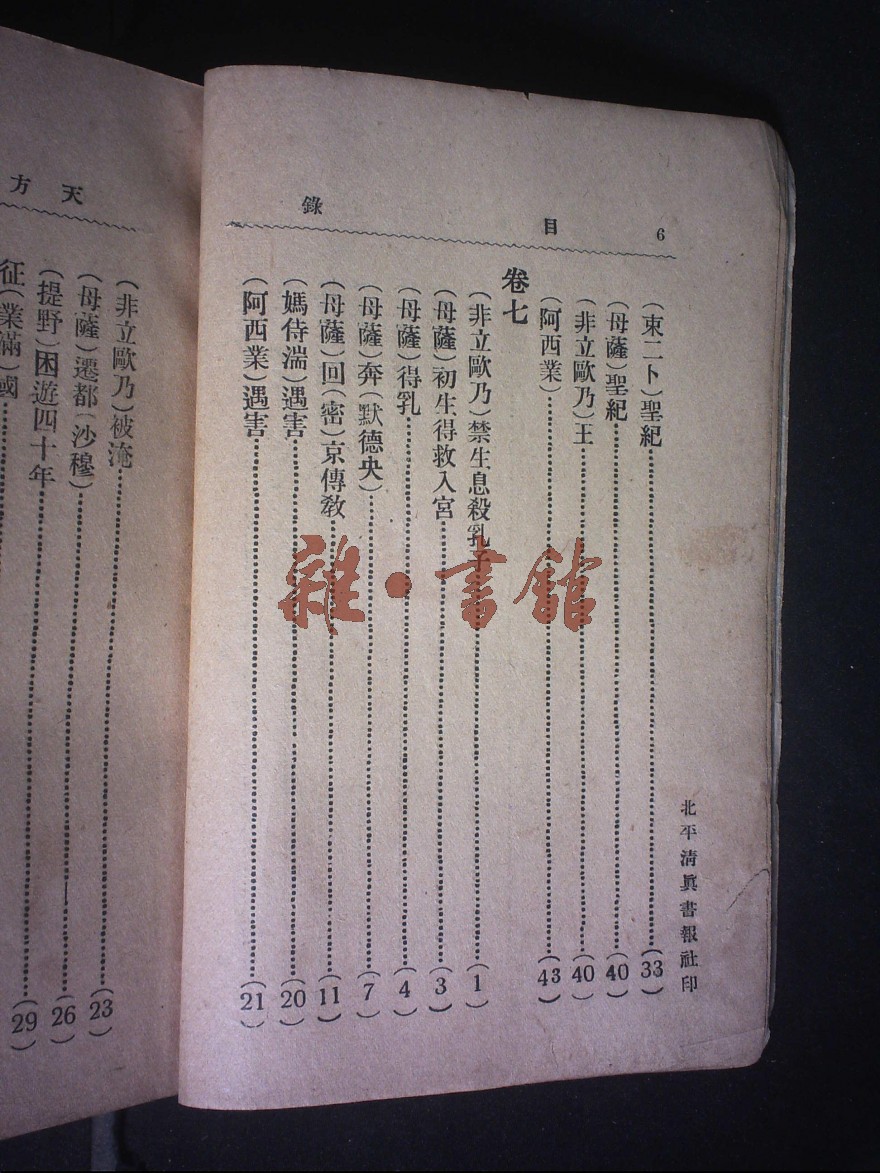 6 目錄
(東二卜)聖紀(33)
(母薩)聖紀(40)
(非立歐乃)王(40)
(阿西業)(43)
卷七
(非立歐乃)禁生息殺乳子(1)
(母薩)初生得救入宮(3)
(母薩)得乳(4)
(母薩)奔(默德央)(7)
(母薩)回(密)京傳教(11)
(媽侍湍)遇害(20)
(阿西業)遇害(21)
北平清眞書報社印
天方
(非立歐乃)被淹(23)
(母薩)遷都(沙穆)(26)
(提野)困遊四十年
征(業滿)國(29)
雜·書館